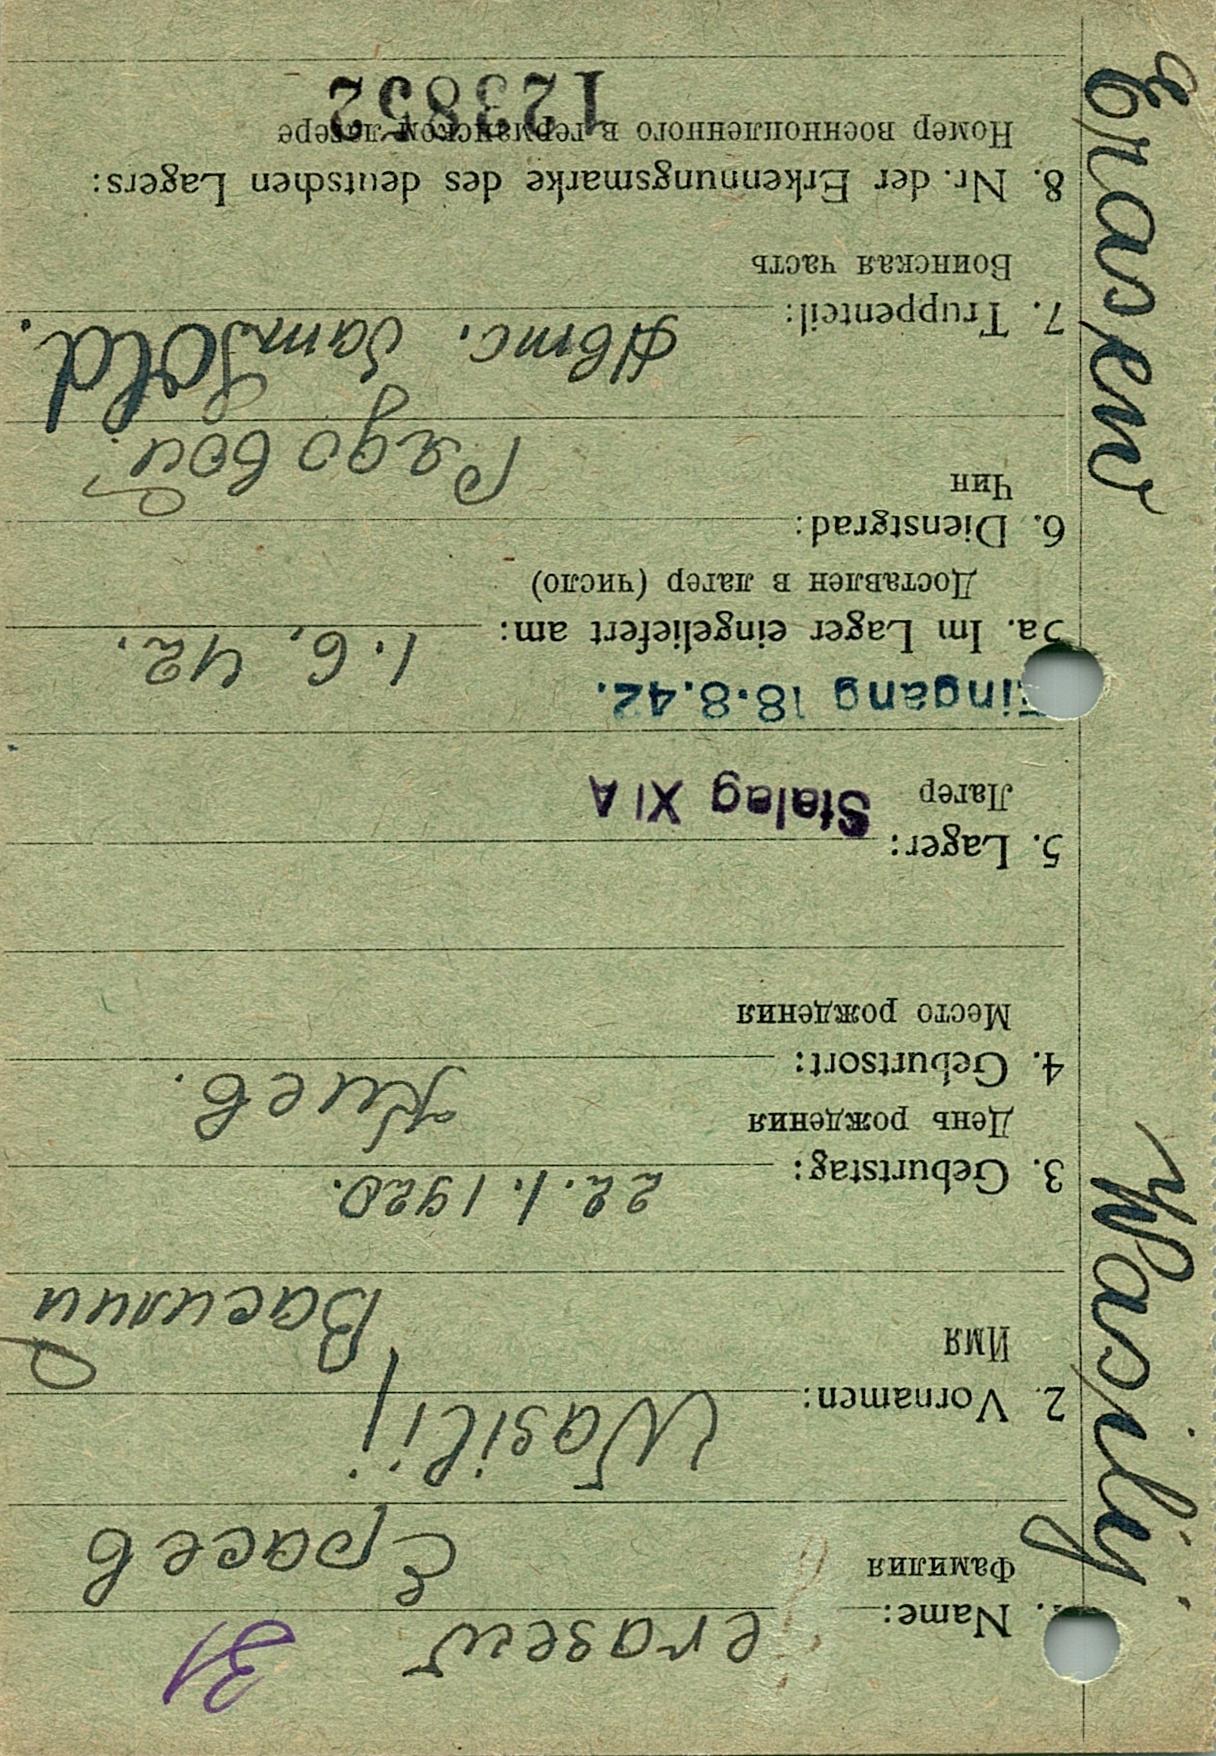 31
1. Name: erasew
Фамилия Ерасев
2. Vornamen: Wasilij
Имя Василий
3. Geburtstag: 22.1.1920.
День рождения
4. Geburtsort: Киев.
Место рождения
5. Lager:
Лагер Stalag XI A
Eingang 18.8.42.
5a. Im Lager eingeliefert am: 1.6.42.
Доставлен в лагер (число)
6. Dienstgrad:
Чин Рядовой.
Sold.
7. Truppenteil: Авто. бат
Воинская часть
8. Nr. der Erkennungsmarke des deutschen Lagers:
Номер военнопленного в германском лагере
123852
Erasew Wasilij